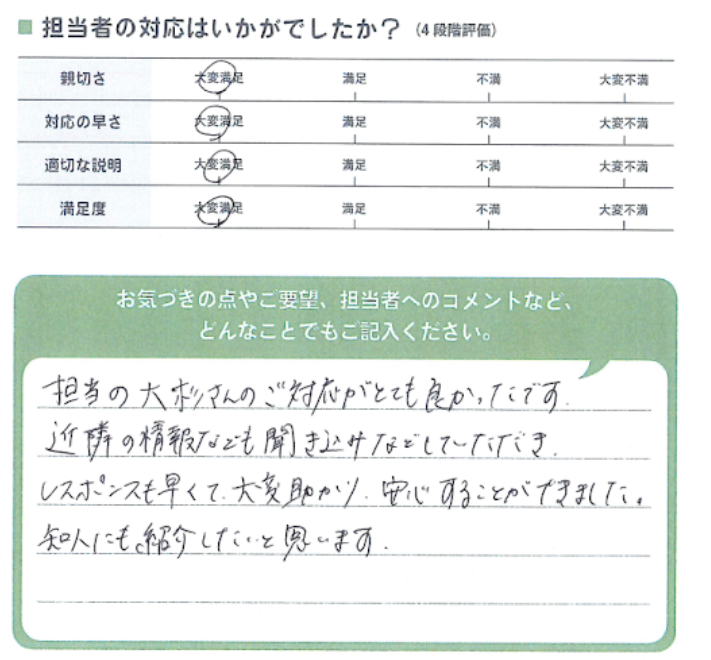 ■ 担当者の対応はいかがでしたか？（4段階評価）
親切さ 大変満足 満足 不満 大変不満
対応の早さ 大変満足 満足 不満 大変不満
適切な説明 大変満足 満足 不満 大変不満
満足度 大変満足 満足 不満 大変不満
お気づきの点やご要望、担当者へのコメントなど、
どんなことでもご記入ください。
担当の大杉さんのご対応がとても良かったです.
近隣の情報なども聞き込みなどしていただき.
レスポンスも早くて、大変助かり、安心することができました。
知人にも紹介したいと思います.